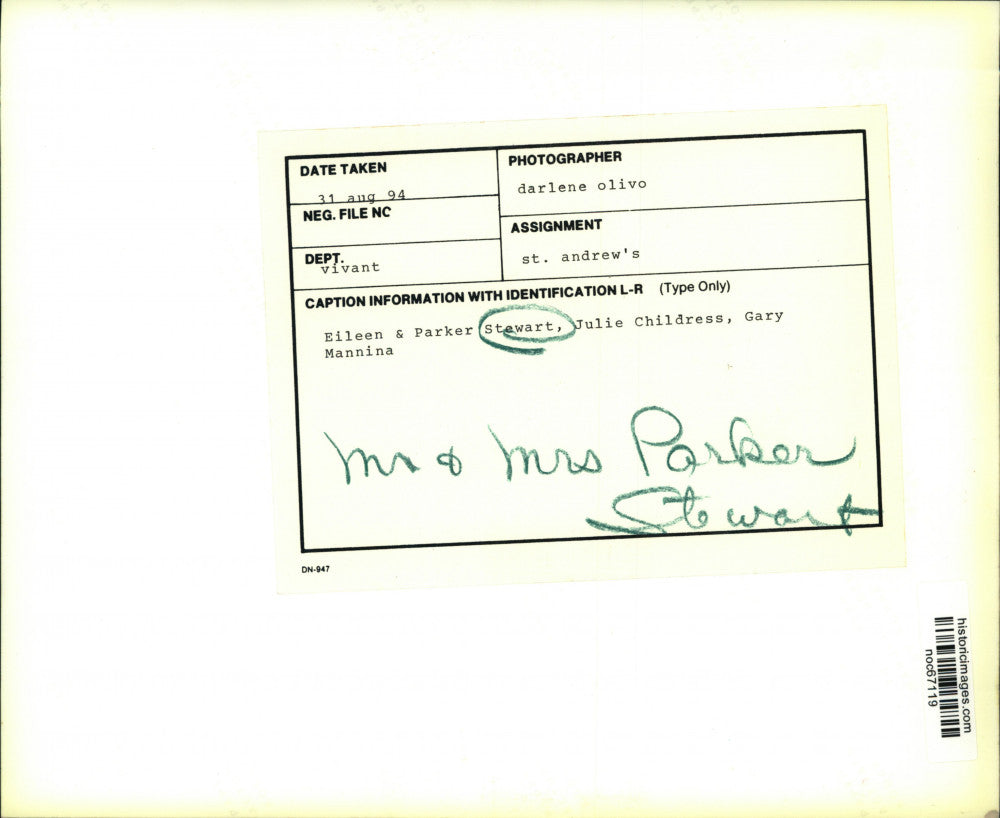 DATE TAKEN
31 aug 94
NEG. FILE NO
DEPT.
vivant
PHOTOGRAPHER
darlene olivo
ASSIGNMENT
st. andrew's
CAPTION INFORMATION WITH IDENTIFICATION L-R (Type Only)
Eileen & Parker Stewart, Julie Childress, Gary
Mannina
Mr & Mrs Parker
Stewart
DN-947
historicimages.com
noc67119